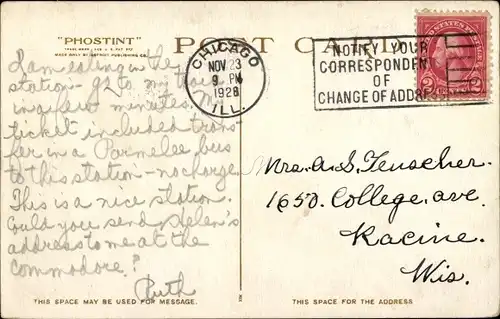 "PHOSTINT"
POST CARD
CHICAGO
NOV 23
9 PM
1928
ILL.
NOTIFY YOUR
CORRESPONDENT
OF
CHANGE OF ADDRE
I am eating in the
station - go to my train
in a few minutes. My
ticket included trans-
fer in a Parmelee bus
to this station - no charge.
This is a nice station.
Could you send Helen's
address to me at the
Commodore?
Ruth
Mrs. A. S. Teuscher.
1650. College. ave.
Racine.
Wis.
THIS SPACE MAY BE USED FOR MESSAGE.
THIS SPACE FOR THE ADDRESS